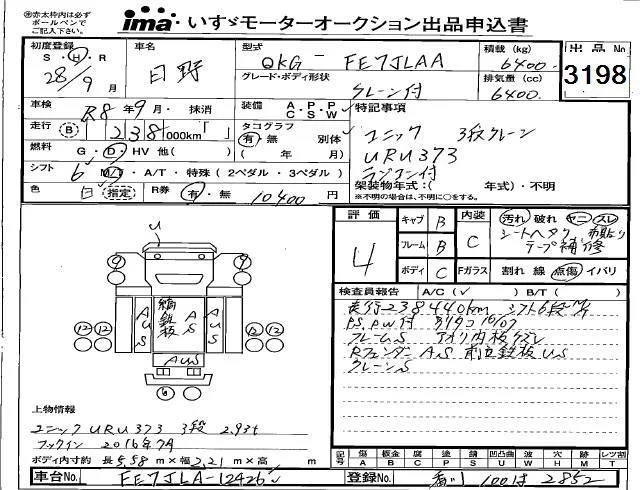 ※赤太枠内は必ず
ボールペンで
ご記入ください。
ima いすゞモーターオークション出品申込書
初度登録 車名 型式 積載 (kg) 出品No
S・H・R 28/9月 日野 QKG - FE7JLAA 6400 3198
グレード・ボディ形状 クレーン付 排気量 (cc) 6400
車検 R8年9月・ 抹消 装備 A・P・P C・S・W 特記事項
走行 B 238,000km「 」 タコグラフ 有・無 別体 ユニック 3段クレーン
燃料 G・D・HV 他( ) ( 年 月) URU373
シフト 6 M/T・A/T・特殊(2ペダル・3ペダル) ラジコン付
色 白 指定 R券 有・無 10400円 架装物年式:( 年式)・不明
※不明の場合は、不明に○をする。
評価 4 キャブ B 内装 C 汚れ 破れ ヤニ スレ
フレーム B シートヘタリ 布貼り テープ補修
ボディ C Fガラス 割れ 線 点傷 イバリ
検査員報告 A/C(✓) B/T( )
走行238440km シフト6段M/T
P.S, P.W付 タグタコ 16/07
フレームS アオリ内板クズレ
Rフェンダー AS 前立鉄板US
クレーンS
U
9 9
12 12 12 12
AUS S 縞鉄板 S S AUS
AUS
6
上物情報
ユニック URU373 3段 2.93t
フックイン 2016年7月
ボディ内寸約 長 5.58 m×幅 2.21 m×高 m
記号 傷 A 板金 B 腐 C 塗 P サビ S 凹凸 U 波 W 穴 H 跡 M レツ割 T
車台No. FE7JLA-12426 登録No. 100 は 2852